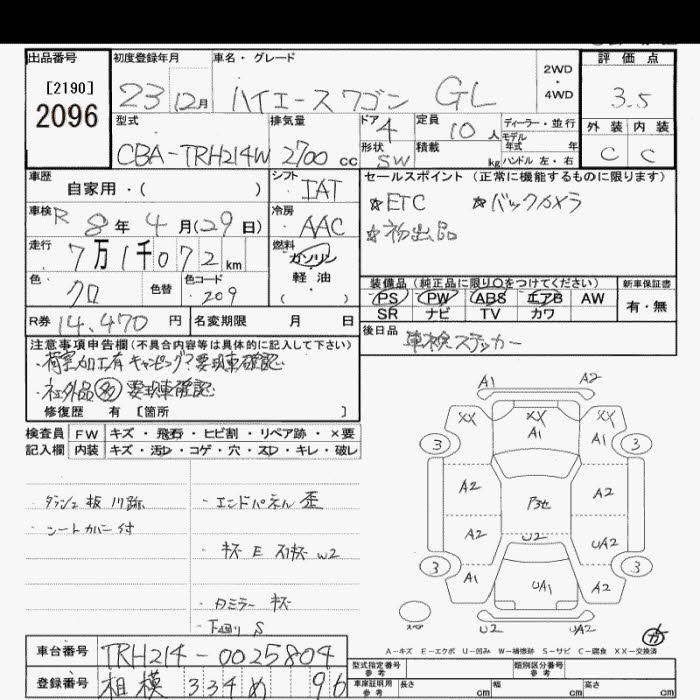 出品番号 初度登録年月 車名・グレード 2WD・4WD 評価点
[2190]
2096
23 12月 ハイエースワゴン GL 3.5
型式 排気量 ドア 4 定員 10人 ディーラー・並行
モデル年式 年 外装 内装
CBA-TRH214W 2700 cc 形状 SW 積載 kg ハンドル 左・右 C C
車歴 自家用・( ) シフト IAT セールスポイント (正常に機能するものに限ります)
車検 R 8年 4月(29日) 冷房 AAC ☆ETC ☆バックカメラ
☆初出品
走行 7万1千072km 燃料 ガソリン 軽油 ( )
色 クロ 色替 色コード 209
装備品(純正品に限り○をつけてください) 新車保証書
PS PW ABS エアB AW 有・無
SR ナビ TV カワ
R券 14,470円 名変期限 月 日
後日品 車検ステッカー
注意事項申告欄(不具合内容等は具体的に記入して下さい)
・荷室加工有 キャンピング?要現車確認
・社外品多 要現車確認
修復歴 有 [箇所 ]
検査員記入欄 FW キズ・飛石・ヒビ割・リペア跡・×要
内装 キズ・汚D・コゲ・穴・スD・キレ・破レ
・ダッシュ板 ハリ跡 ・エンドパネル 歪
・シートカバー付
・キズ E
・Dミラー キズ
・下回り S
A1 A2
XX XX XX
A1
3 3
A2 A2
A2 U2 UA2
3 3
A1 UA1 A2
スペア U2 UA2
A-キズ E-エクボ U-凹み W-補修跡 S-サビ C-腐食 XX-交換済
車台番号 TRH214-0025804
登録番号 相模 334 め 96
型式指定番号 参考 類別区分番号 参考
車庫証明用 参考 長さ cm 幅 cm 高さ cm